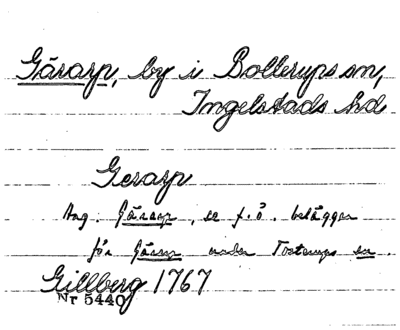 Gärarp, by i Bollerups sn,
Ingelstads hd
Gerarp
Ang. Gärarp, se f.ö. beläggen
för Gärarp under Tosterups sn.
Gillberg 1767
Nr 5440